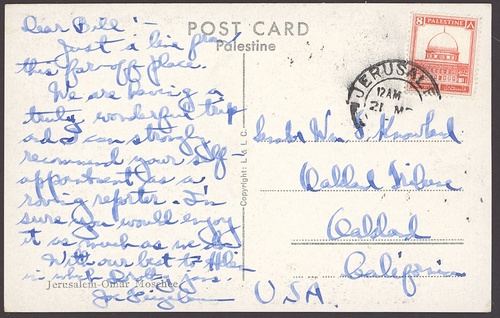 POST CARD
Palestine
Dear Bill:-
Just a line from
this far-off place.
We are having a
truly wonderful trip
and I can strongly
recommend your self-
appointment as a
roving reporter. I'm
sure you would enjoy
it as much as we do.
With our best to Helen
in which Dorothy joins.
Joe
Jerusalem-Omar Moschee
Copyright: L & L C.
8 PALESTINE ٨
JERUSALEM
12 AM
21 M
Senator Wm F. Knowland
Oakland Tribune
Oakland
California
U.S.A.